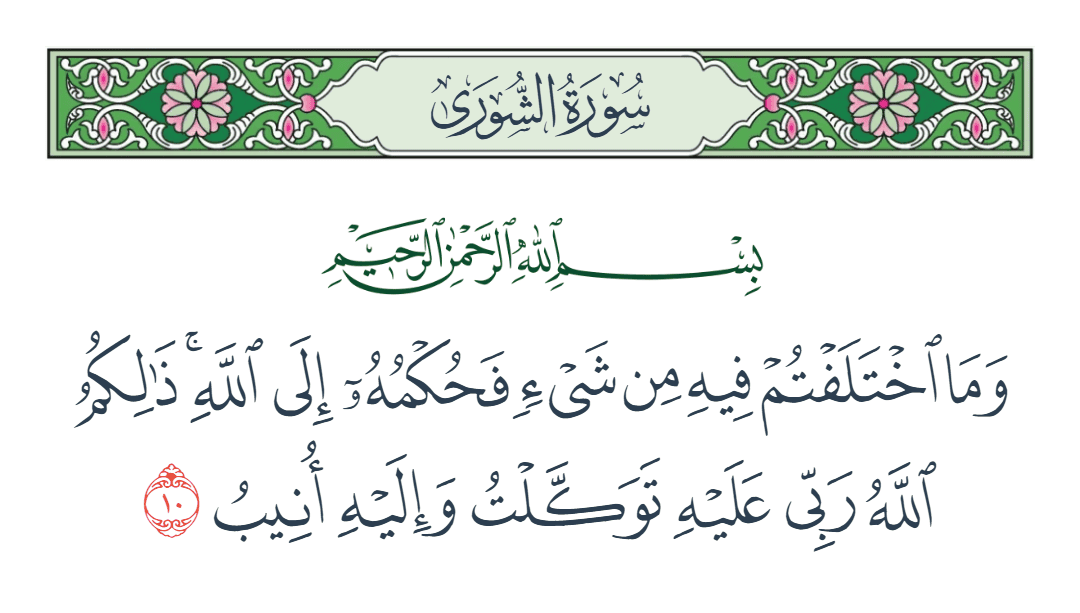 سُورَةُ الشُّورَىٰ
بِسْمِ ٱللَّهِ ٱلرَّحْمَٰنِ ٱلرَّحِيمِ
وَمَا ٱخْتَلَفْتُمْ فِيهِ مِن شَىْءٍ فَحُكْمُهُۥٓ إِلَى ٱللَّهِ ۚ ذَٰلِكُمُ
ٱللَّهُ رَبِّى عَلَيْهِ تَوَكَّلْتُ وَإِلَيْهِ أُنِيبُ ١٠